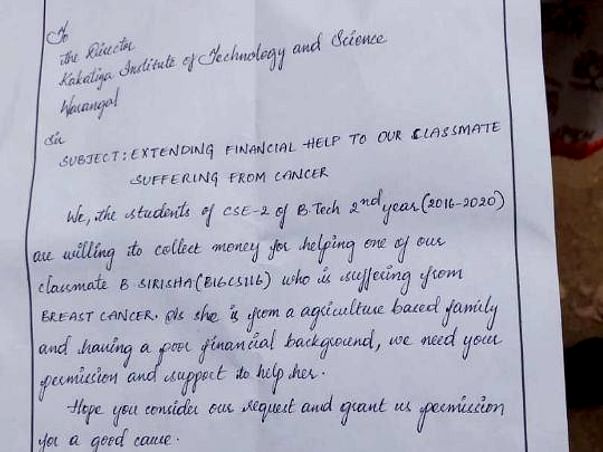 To
The Director
Kakatiya Institute of Technology and Science
Warangal
Sir
SUBJECT: EXTENDING FINANCIAL HELP TO OUR CLASSMATE
SUFFERING FROM CANCER
We, the students of CSE-2 of B.Tech 2nd year (2016-2020)
are willing to collect money for helping one of our
classmate B SIRISHA (B16CS116) who is suffering from
BREAST CANCER. As she is from a agriculture based family
and having a poor financial background, we need your
permission and support to help her.
Hope you consider our request and grant us permission
for a good cause.